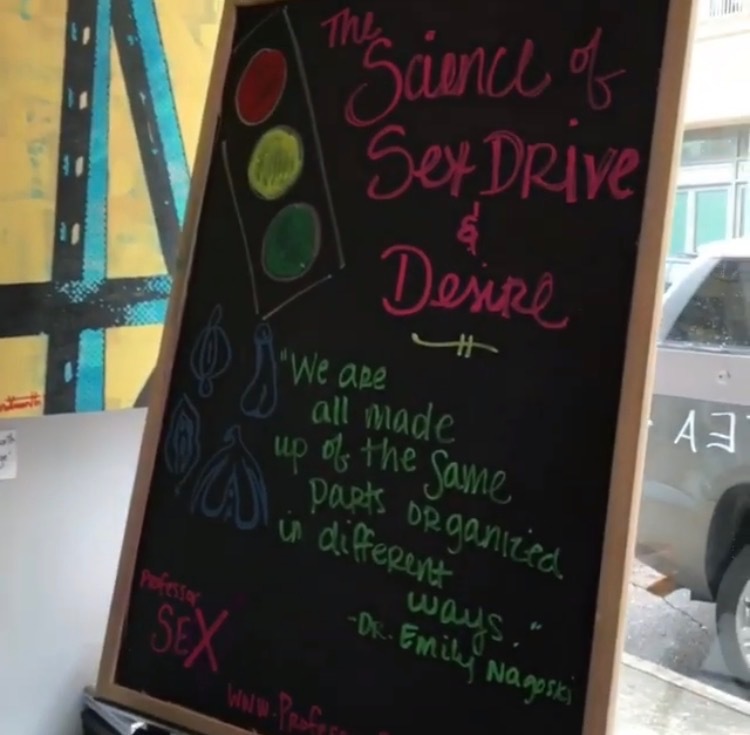 The
Science of
Sex DRive
&
Desire
"We are
all made
up of the same
parts organized
in different
ways."
-DR. Emily Nagoski
Professor
SEX